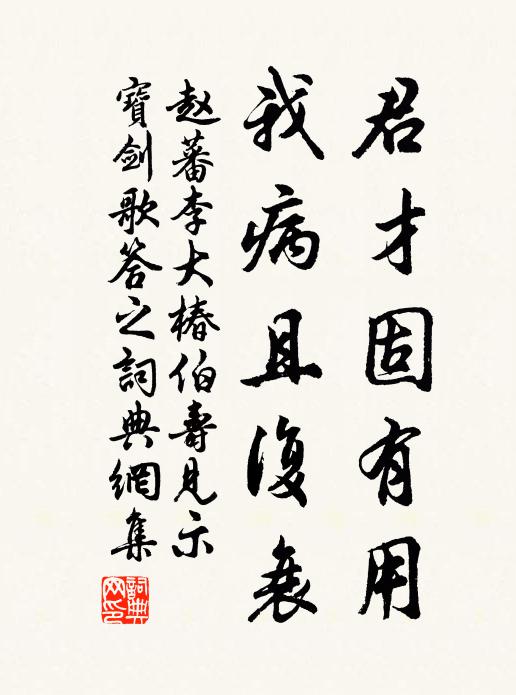 君才固有用
我病且復衰
赵蕃李大椿伯壽見示
寶劍歌答之詞典網集
詞典网印